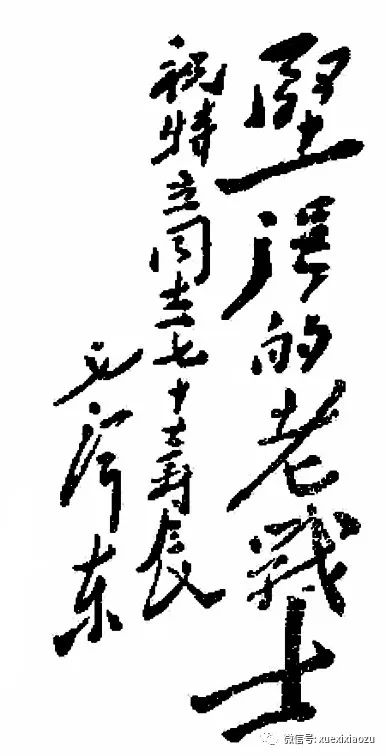 堅强的老戰士
祝特立同志七十壽辰
毛泽東
微信号: xuexixiaozu